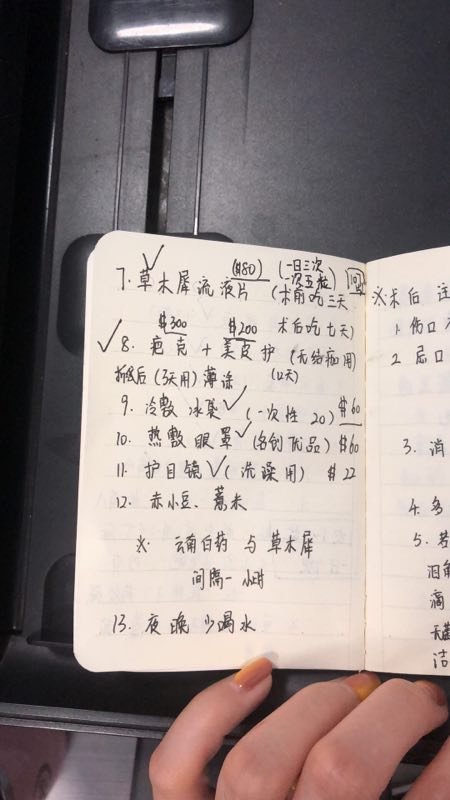 7. 草木犀流液片 ($80) (一日三次
一次五粒)
(术前吃三天
术后吃七天)
$300 $200
8. 疤克 + 美皮护 (无结痂用)
拆线后 (3天用) 薄涂 (12天)
9. 冷敷冰袋 (一次性 20) $60
10. 热敷眼罩 (名创优品) $60
11. 护目镜 (洗澡用) $22
12. 赤小豆、薏米
※. 云南白药 与 草木犀
间隔一小时
13. 夜晚少喝水
※术后 注
1. 伤口
2. 忌口
3. 消
4. 多
5. 若
泪
滴
洁